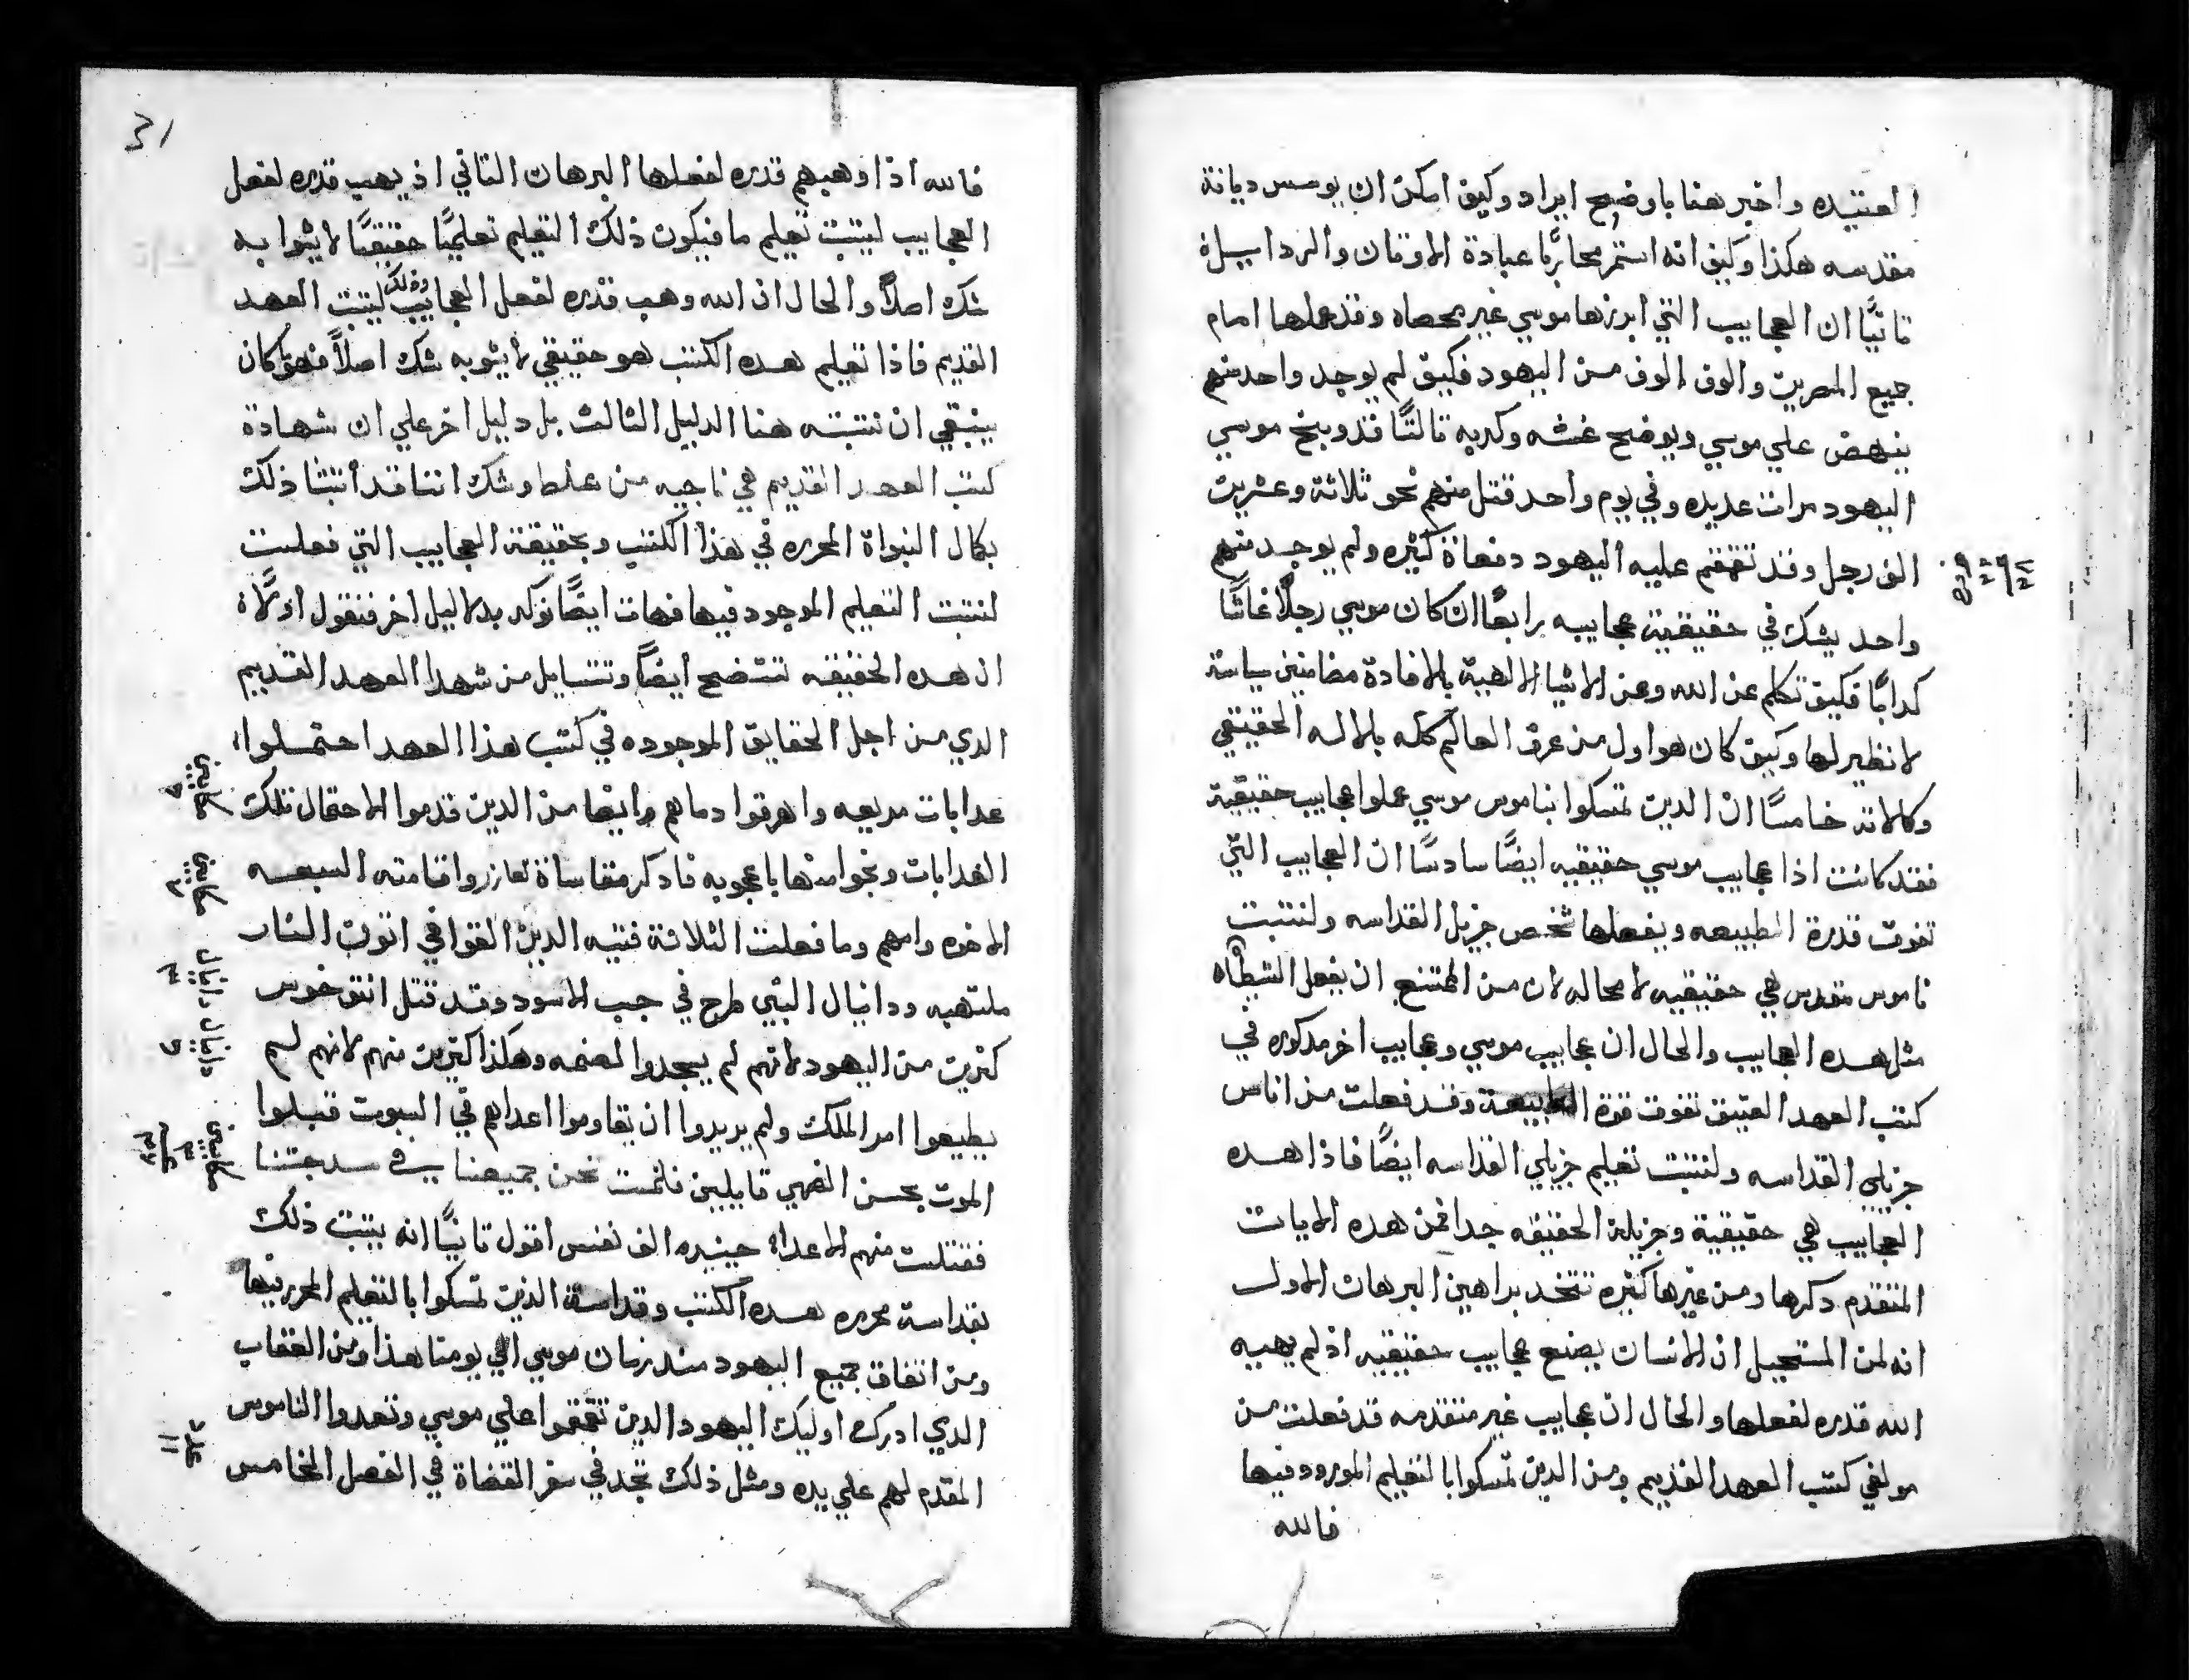 العتيده واخبر هنا باوضح ايراد وكيف امكن ان يوسس ديانة
مقدسه هكذا وكيف انه استمر محاربًا عبادة الاوتان والرداييلة
تانيًا ان العجايب التي ابرزها موسي غير محصاه وقد عملها امام
جميع المصريين والوف الوف من اليهود فكيف لم يوجد واحد منهم
ينهض علي موسي ويوضح غشه وكدبه تالتًا قد وبخ موسي
اليهود مرات عديده وفي يوم واحد قتل منهم نحو ثلاثة وعشرين
الف رجل وقد تقمقم عليه اليهود دفعاة كثيره ولم يوجد منهم
واحد يشك في حقيقية عجايبه رابعًا ان كان موسي رجلاً غاشًا
كدابًا فكيف تكلم عن الله وعن الاشيا الالهية بالافادة مضامين سياسة
لا نظير لها وكيف كان هو اول من عرف العالم كله بالاله الحقيقي
وكالاته خامسًا ان الدين تمسكوا بناموس موسي عملوا عجايب حقيقية
فقد كانت اذا عجايب موسي حقيقيه ايضًا سادسًا ان العجايب التي
تفوق قدرة الطبيعه ويفعلها شخص جزيل القداسه ولتتبت
ناموس مقدس هي حقيقيه لا محاله لان من الممتنع ان يفعل الشيطان
مثل هده العجايب والحال ان عجايب موسي وعجايب اخر مدكوره في
كتب العهد العتيق تفوق قوة الطبيعة وقد فعلت من اناس
جزيلي القداسه ولتتبت تعليم جزيلي القداسه ايضًا فاذا هده
العجايب هي حقيقية وجزيلة الحقيقه جدا فمن هده الايات
المتقدم دكرها ومن غيرها كثيره تتخد براهين البرهان الاول
انه لمن المستحيل ان الانسان يصنع عجايب حقيقيه اذ لم يهبه
الله قدره لفعلها والحال ان عجايب غير متقدمه قد فعلت من
مولفي كتب العهد القديم ومن الدين تمسكوا بالتعليم المورود فيها
فالله
31
فالله اذا وهبهم قدره لفعلها البرهان التاني اذ يهب قدره لفعل
العجايب ليتبت تعليم ما فيكون ذلك التعليم تعليمًا حقيقيًا لا يشوابه
شك اصلاً والحال ان الله وهب قدره لفعل العجايب وذلك ليتبت العهد
القديم فاذا تعليم هده الكتب هو حقيقي لا يشوبه شك اصلاً فهو كان
ينبغي ان نتبته هنا الدليل الثالث بل دليل اخر علي ان شهادة
كتب العهد القديم هي ناجيه من غلط وشك اننا قد أتبتنا ذلك
بكمال النبواة المحرره في هذا الكتب وبحقيقة العجايب التي فعلت
لتتبت التعليم الموجود فيها فهات ايضًا نوكد بدلاليل اخر فنقول اولاً
ان هده الحقيقه تتضح ايضاً وتتسايل من شهدا العهد القديم
الدي من اجل الحقايق الموجوده في كتب هذا العهد احتملوا
عدابات مريعه واهرقوا دماهم وايضا من الدين قدموا الاحتمال تلك
العدابات ونجوا منها باعجوبه فادكر مقاساة لعازر واقامته السبعه
الاخوه وامهم وما فعلت الثلاثة فتيه الدين القوا في اتون النار
ملتهبه ودانيال النبي طرح في جب الاسود وقد قتل انتوخوس
كثرين من اليهود لانهم لم يسجدوا لصنمه وهكذا كثرين منهم لانهم لم
يطيعوا امر الملك ولم يريدوا ان يقاوموا اعداهم في السبوت قبلوا
الموت بحسن الصهي قايليين فلنمت نحن جميعنا في سدجتنا
فقتلت منهم الاعدا حينيده الف نفس اقول تانيًا انه يتبت ذلك
بقداسة محرره هده الكتب وقداسة الذين تمسكوا بالتعليم المحرر فيها
ومن اتفاق جميع اليهود مند زمان موسي الي يومنا هذا ومن العقاب
الدي ادرك اوليك اليهود الدين تقمقموا علي موسي وتعدوا الناموس
المقدم لهم علي يده ومثل ذلك تجد في سفر القضاة في الفصل الخامس
مكابيين
مكابيين ٢
دانيال ٣
دانيال
مكابيين
عدد ١١